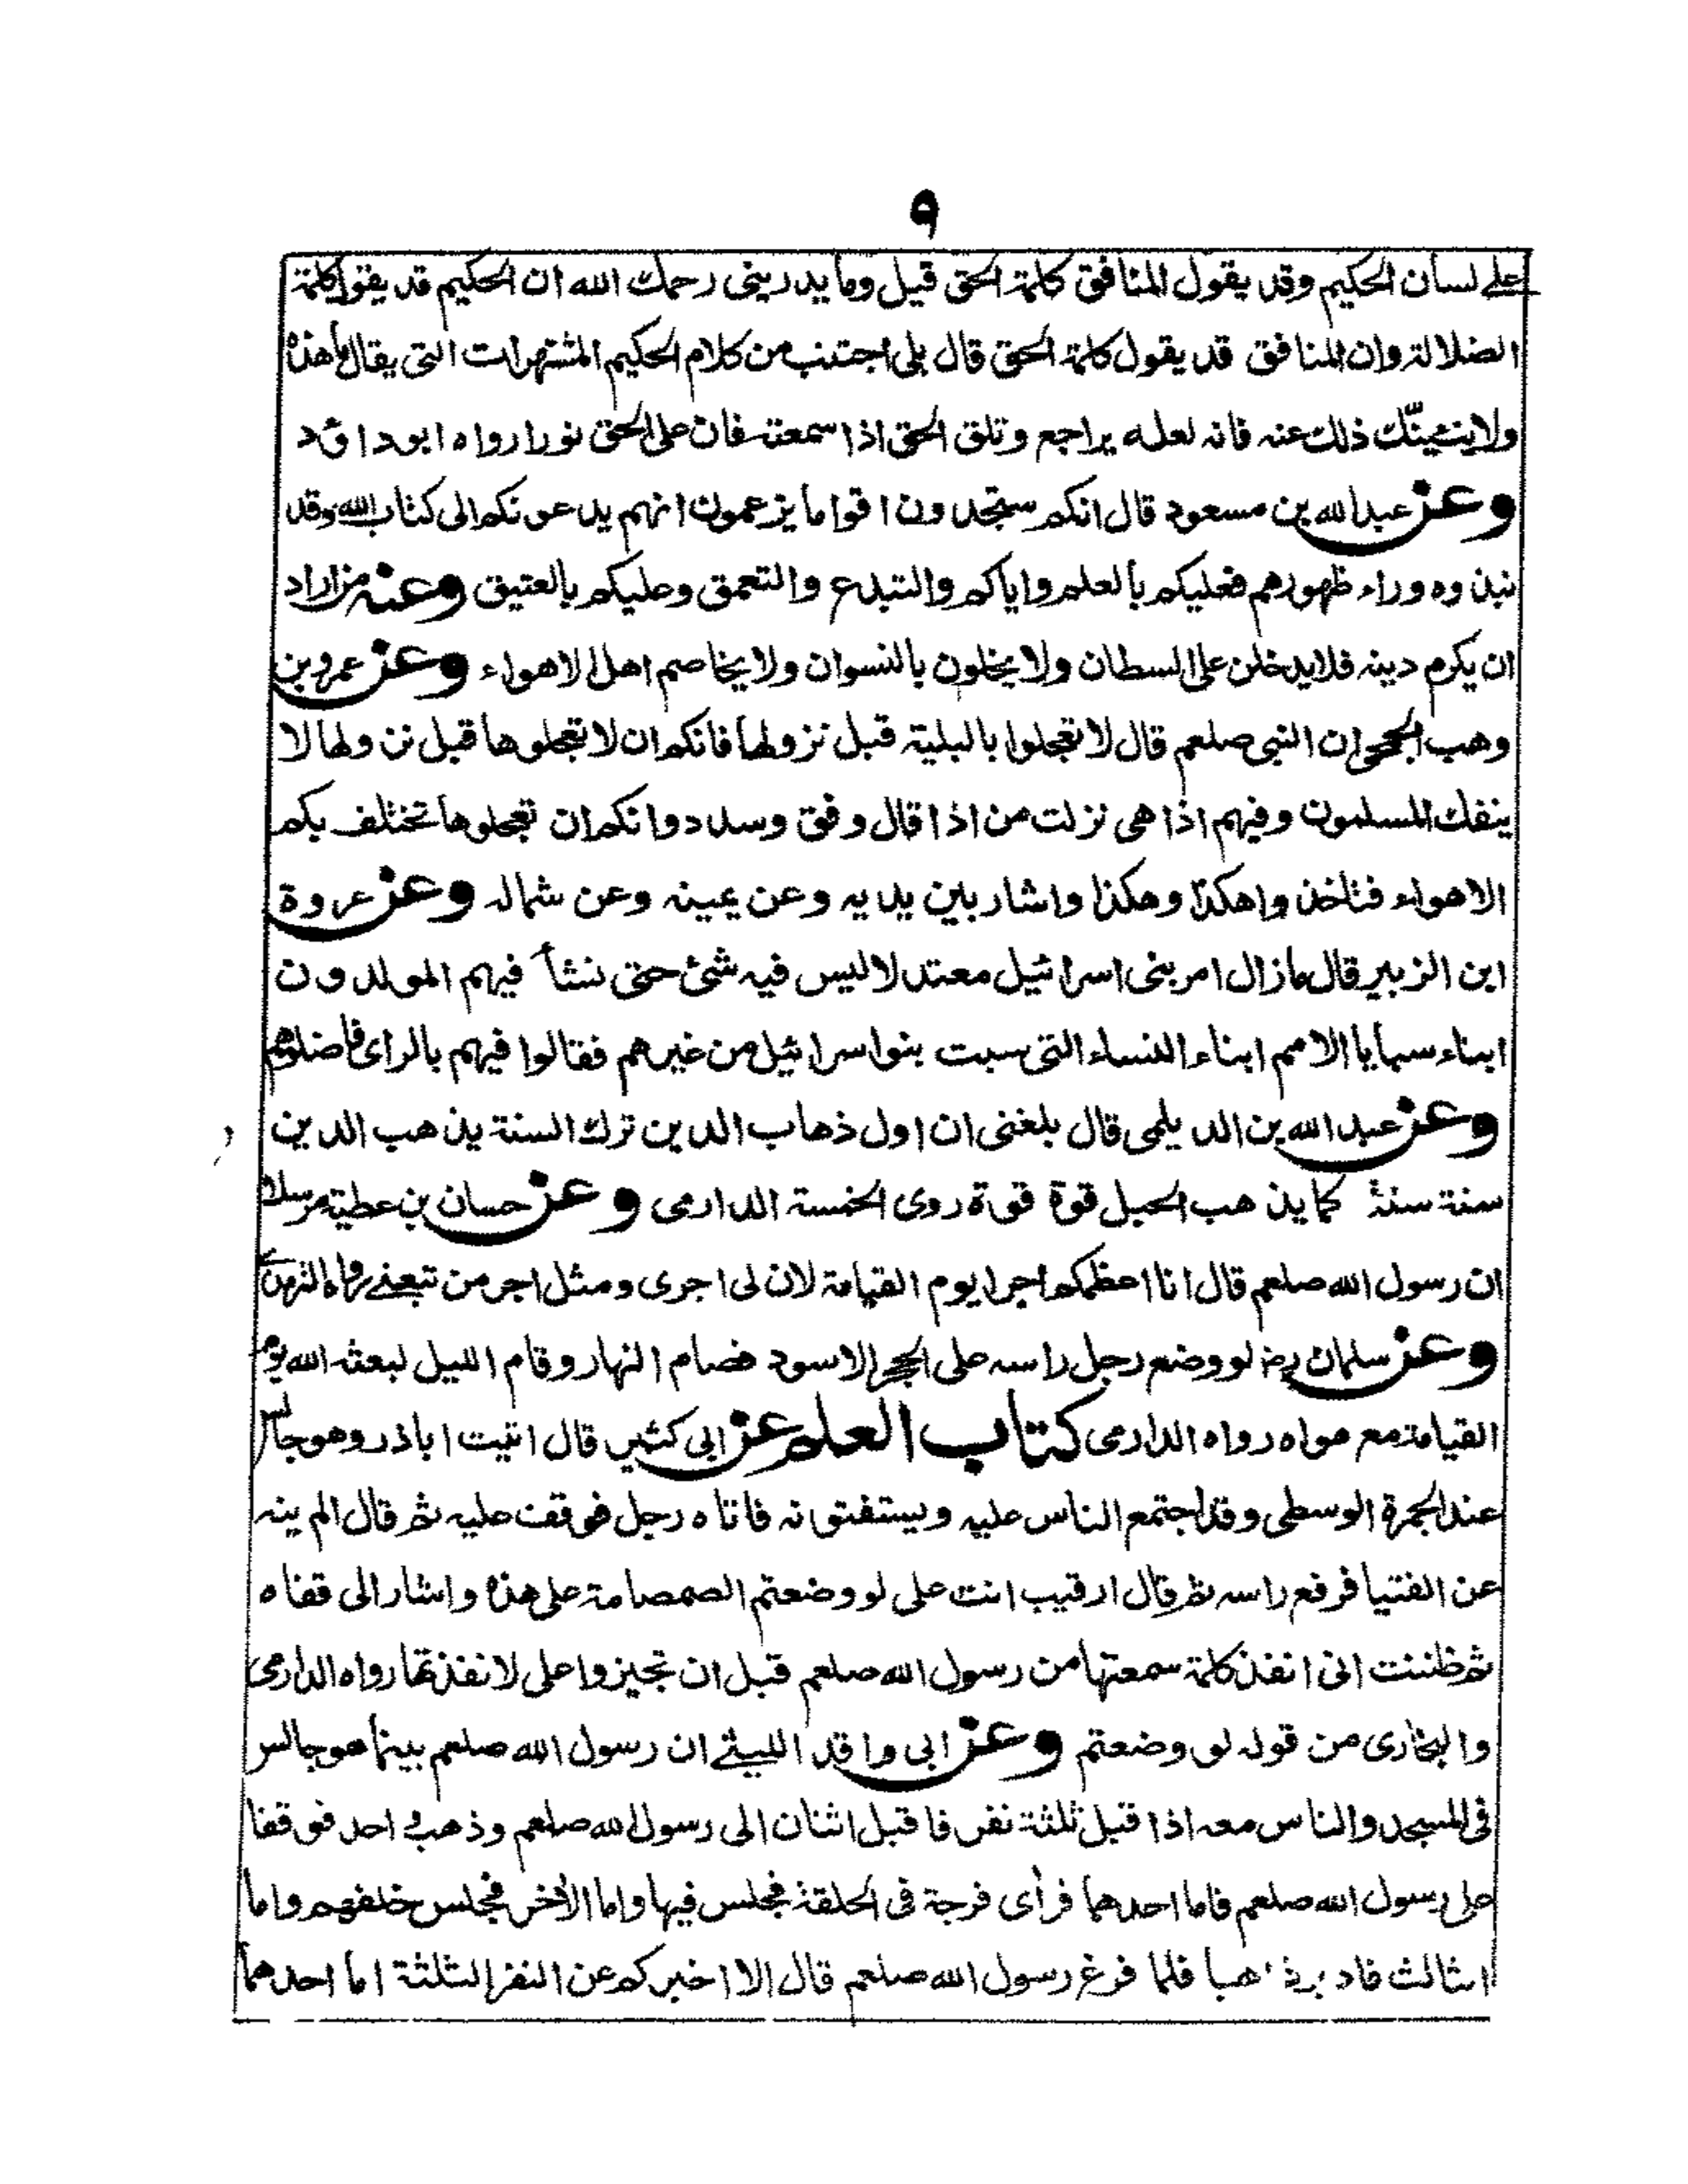 ٩
على لسان الحكيم وقد يقول المنافق كلمة الحق قيل وما يدريني رحمك الله ان الحكيم قد يقول كلمة
الضلالة وان المنافق قد يقول كلمة الحق قال بلى اجتنب من كلام الحكيم المشتهرات التي يقال ما هذه
ولا يثنينّك ذلك عنه فانه لعله يراجع وتلق الحق اذا سمعته فان على الحق نورا رواه ابو داؤد
وعن عبد الله بن مسعود قال انكم ستجدون اقواما يزعمون انهم يدعونكم الى كتاب الله وقد
نبذوه وراء ظهورهم فعليكم بالعلم واياكم والتبدع والتعمق وعليكم بالعتيق وعنه من اراد
ان يكرم دينه فلا يدخلن على السطان ولا يخلون بالنسوان ولا يخاصم اهل الاهواء وعن عمرو بن
وهب الجمحي ان النبي صلعم قال لا تعجلوا بالبلية قبل نزولها فانكم ان لا تعجلوها قبل نزولها لا
ينفك المسلمون وفيهم اذا هي نزلت من اذا قال وفق وسدد وانكم ان تعجلوها تختلف بكم
الاهواء فتاخذوا هكذا وهكذا واشار بين يديه وعن يمينه وعن شماله وعن عروة
ابن الزبير قال مازال امر بني اسرائيل معتدلا ليس فيه شئ حتى نشأ فيهم المولدون
ابناء سبايا الامم ابناء النساء التي سبت بنو اسرائيل من غيرهم فقالوا فيهم بالراى فاضلوهم
وعن عبد الله بن الديلمي قال بلغني ان اول ذهاب الدين ترك السنة يذهب الدين
سنة سنة كما يذهب الحبل قوة قوة روى الخمسة الدارمى وعن حسان بن عطية مرسلا
ان رسول الله صلعم قال انا اعظمكم اجرا يوم القيامة لان لى اجرى ومثل اجر من تبعنى رواه الترمذى
وعن سلمان رض لو وضع رجل راسه على الحجر الاسود فصام النهار وقام الليل لبعثه الله يوم
القيامة مع هواه رواه الدارمى كتاب العلم عن ابى كثير قال اتيت اباذر وهو جالس
عند الجمرة الوسطى وقد اجتمع الناس عليه ويستفتونه فاتاه رجل فوقف عليه ثم قال الم ينه
عن الفتيا فرفع راسه ثم قال ارقيب انت على لو وضعتم الصمصامة على هذه واشار الى قفاه
ثم ظننت انى انفذ كلمة سمعتها من رسول الله صلعم قبل ان تجيزوا على لانفذتها رواه الدارمى
والبخارى من قوله لو وضعتم وعن ابى واقد الليثى ان رسول الله صلعم بينما هو جالس
فى المسجد والناس معه اذا قبل ثلثة نفر فاقبل اثنان الى رسول الله صلعم وذهب واحد فوقفا
على رسول الله صلعم فاما احدهما فرأى فرجة فى الحلقة فجلس فيها واما الآخر فجلس خلفهم واما
الثالث فادبر ذاهبا فلما فرغ رسول الله صلعم قال الا اخبركم عن النفر الثلثة اما احدهما